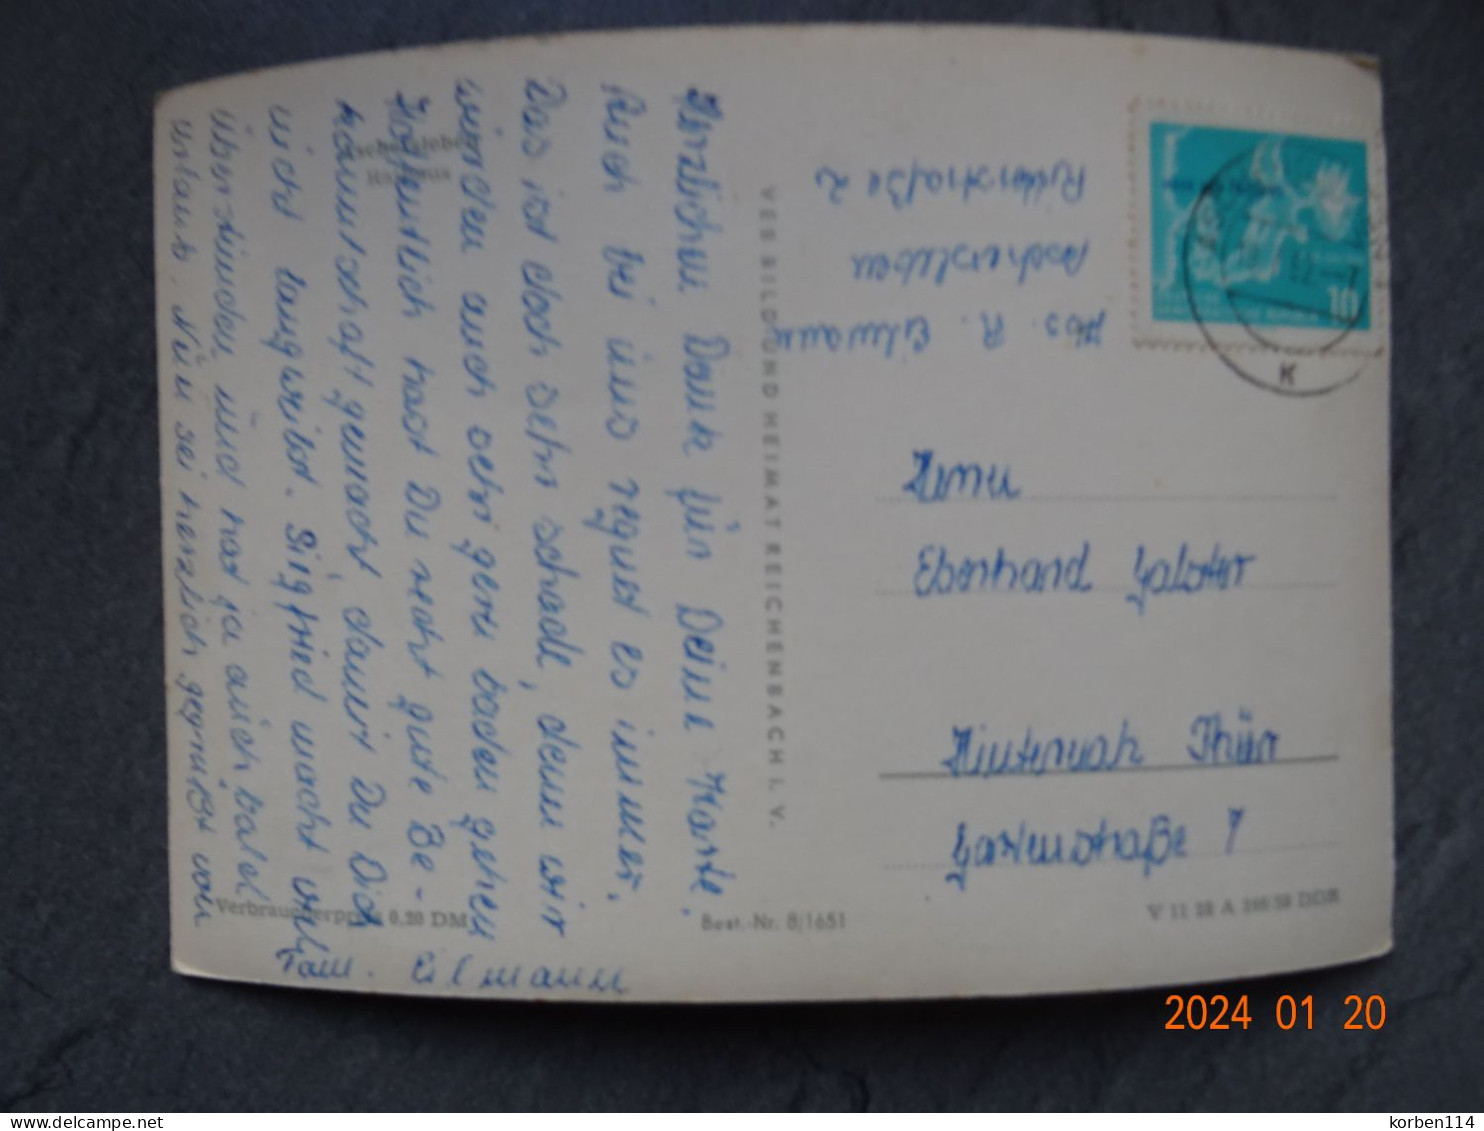 Aschersleben
Rathaus
Herzlichen Dank für Deine Karte.
Auch bei uns regnet es immer.
Das ist doch sehr schade, denn wir
würden auch sehr gern baden gehen
Hoffentlich hast Du recht gute Be-
kanntschaft gemacht, damit Du Dich
nicht langweilst. Siegfried macht viel
überstunden, und hat ja auch bald
Urlaub. Nun sei herzlich gegrüßt von
Fam. Eilmann
Verbraucherpreis 0,20 DM
VEB BILD UND HEIMAT REICHENBACH I. V.
Best.-Nr. 8/1651
Abs. R. Eilmann
Aschersleben
Ritterstraße 2
10
K
Herrn
Eberhard Galster
Hinternah Thür
Gartenstraße 7
V 11 28 A 286/59 DDR
2024 01 20
delcampe.net
korben114